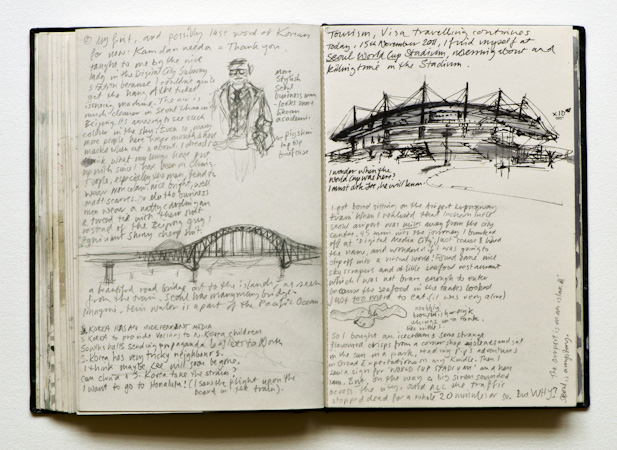 My first, and possibly last word of Korean
for now: Kamdan needa = Thank you.
taught to me by the nice
lady in the Digital City Subway
station because I couldn't
get the hang of the ticket
issuing machine. The air is
much cleaner in Seoul than in
Beijing. It's amazing to see such
colour in the sky. Even so, many
more people here
masks when out & about. I dread
think what my lungs have put
up with since I had been in China.
People, especially the men, tend to
wear more clean, nice bright, well
smart suits. Like the business
men wear a natty cardigan
& tweed tie with their suit
instead of the Beijing grey,
ill shiny cheap suit.
more
stylish
Seoul
business man
- looks more
like an
academic.
pigskin
lap top
briefcase
a beautiful road bridge out to the islands, as seen
from the train. Seoul has many many bridges
this water is a part of the Pacific Ocean.
S. KOREA HAS AN INDEPENDENT MEDIA
S. Korea to provide vaccines to N. Korea children
South halts sending propaganda leaflets to North
S. Korea has very tricky neighbours.
I think maybe Lee will soon be
Can China & S. Korea take the strain?
I want to go to Honolulu! (I saw the flight upon the
board in the train).
Tourism, Visa travelling continues
Today, 15th November 2011, I find myself at
Seoul World Cup Stadium, meandering about and
killing time in the Stadium.
x10
I wonder when the
World Cup was here?
I must ask Joe, he will know
I got bored sitting on the Airport Expressway
train when I realised that Incheon
Seoul airport was miles away from the city
centre. 45 mins into the journey I bunked
off at "Digital Media City", just 'cause I liked
the name, and wondered if I was going to
step off into a virtual world! Found some nice
sky scrapers and a little seafood restaurant
which I was not brave enough to enter
because the seafood in the tanks looked
just too weird to eat. (it was very alive)
in a tank.
So I bought an icecream & some strange
flavoured crisps from a corner shop and sat
in the sun in a park, reading Pip's adventures
in Great Expectations on my Kindle. Then I
saw a sign for "WORLD CUP STADIUM" and here
I am. But, on the way, a big siren sounded
across the city, and ALL the traffic
stopped dead for a whole 20 minutes or so. But WHY?
The airport is on an island